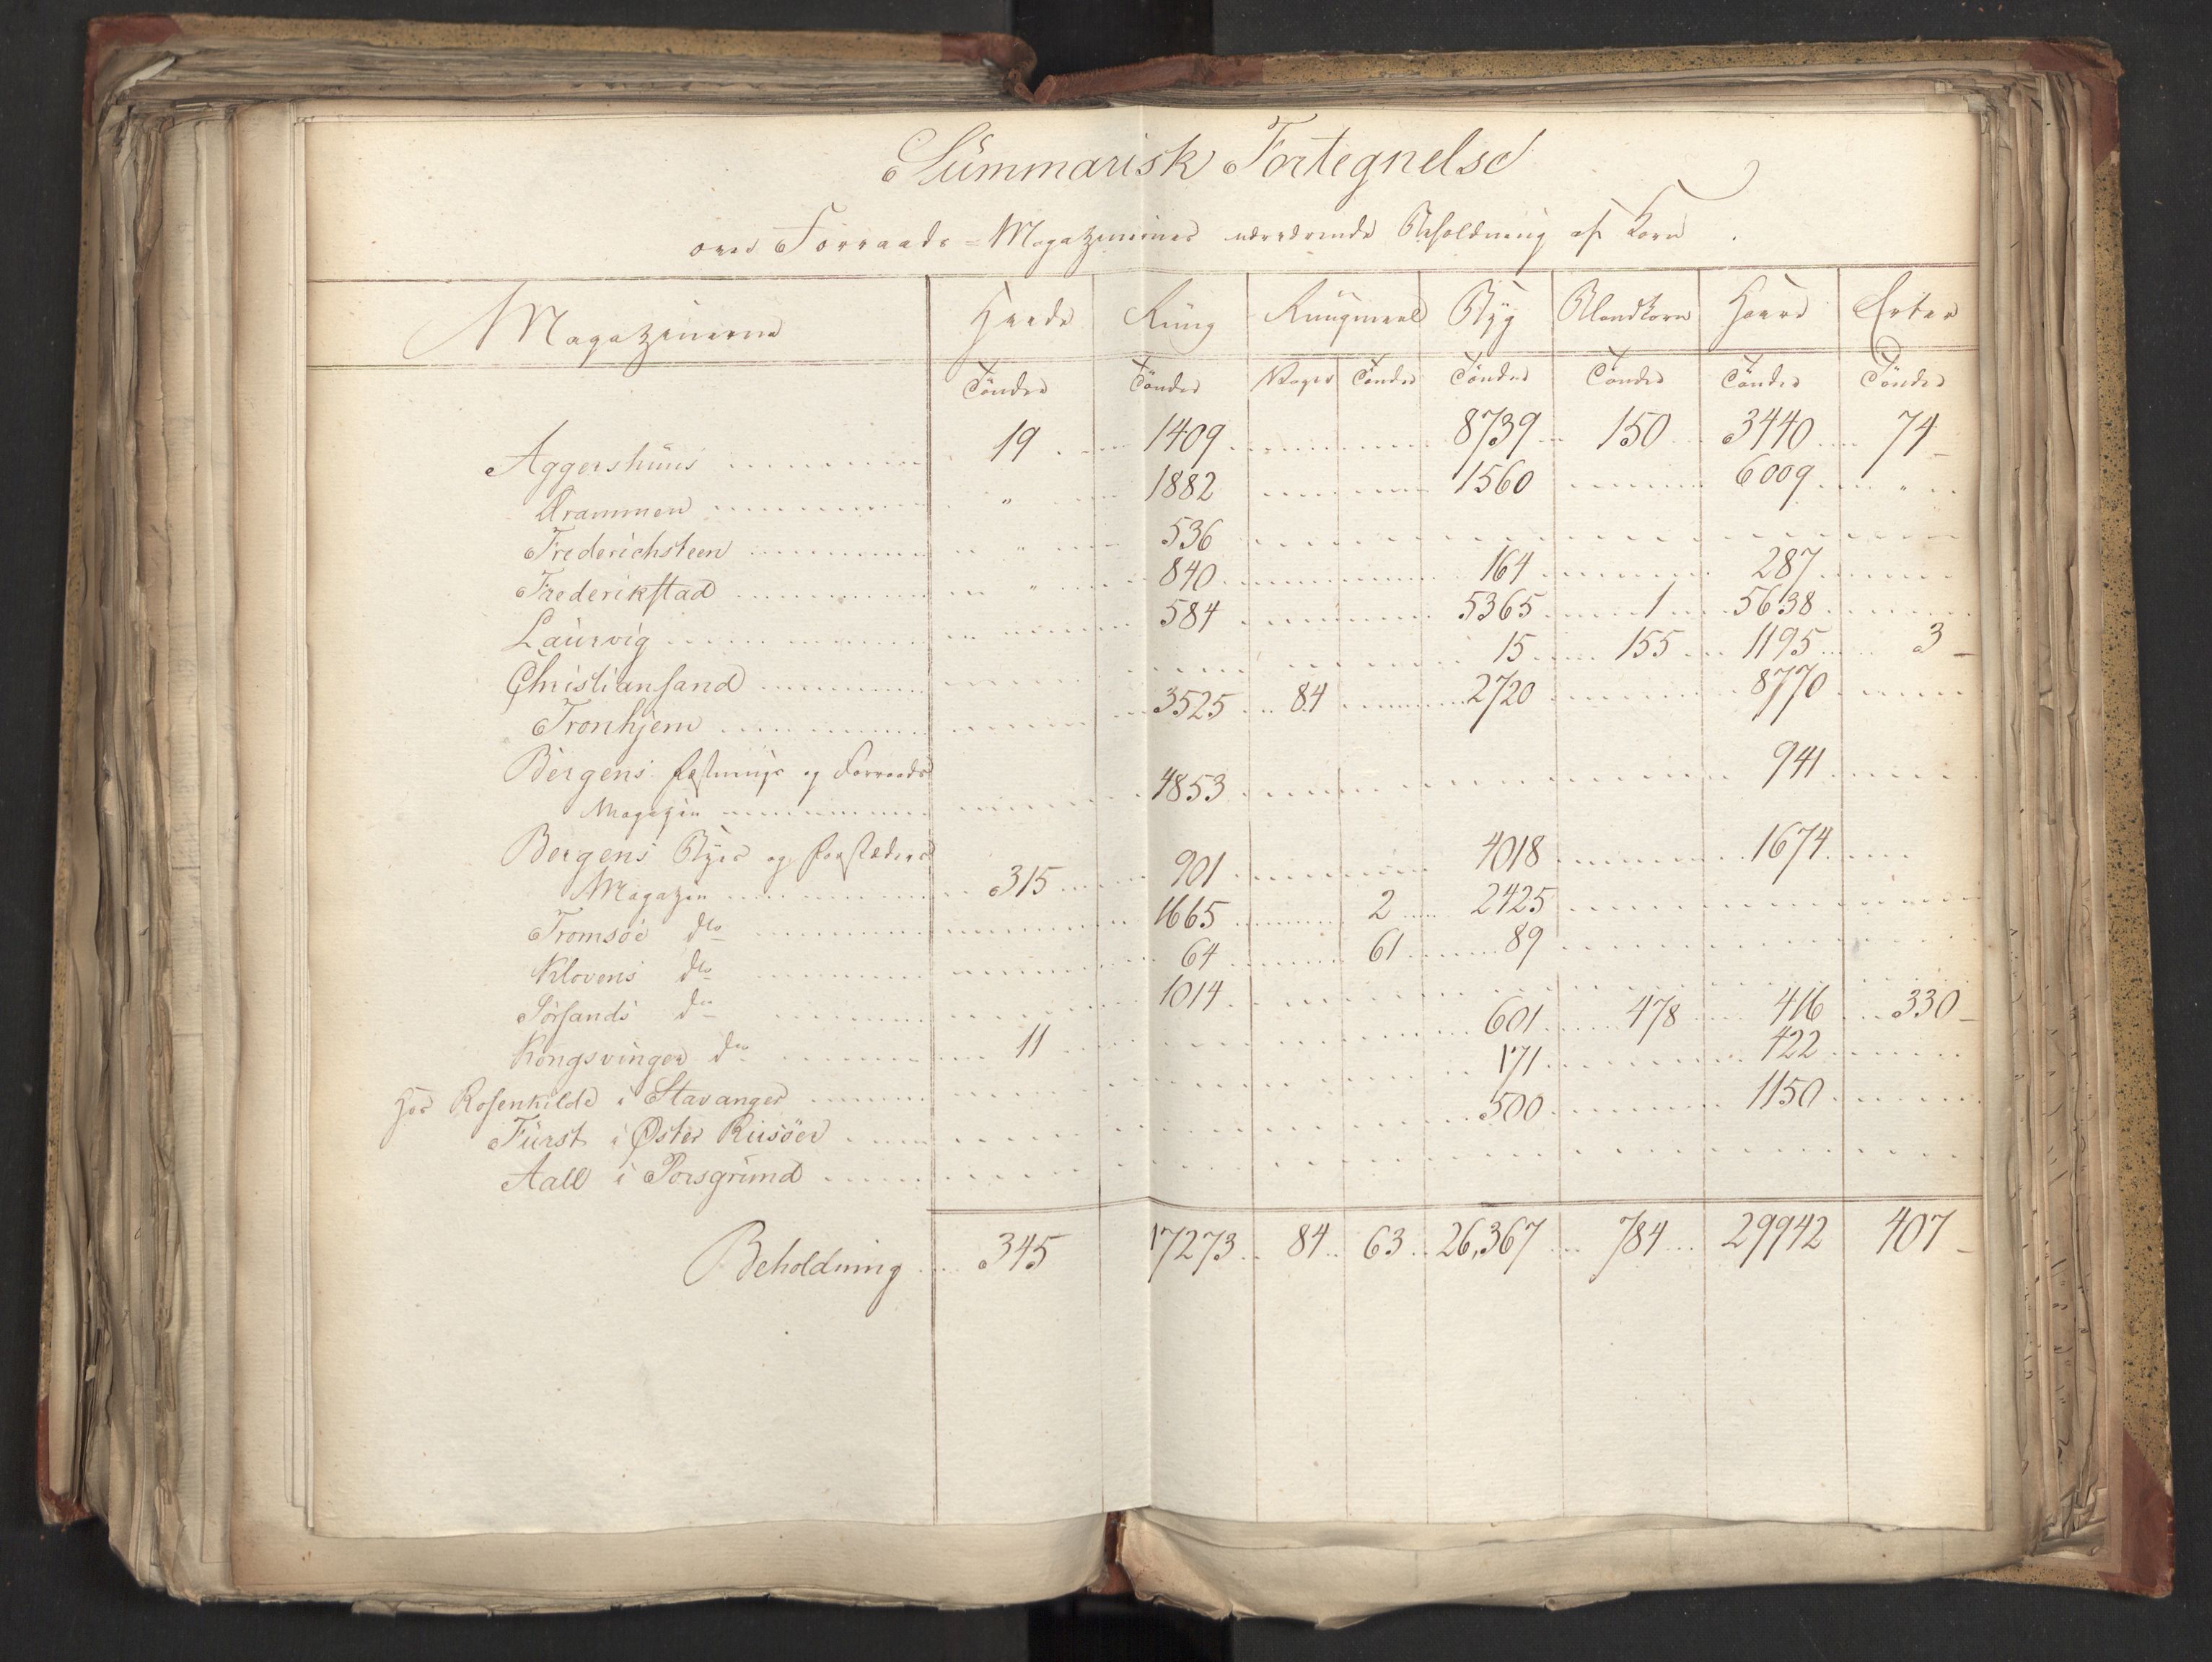 Summarisk Fortegnelse
over Forraads=Magazinernes nærværende Beholdning af Korn.
Magazinerne Hvede Rüug Rüugmeel Byg Blandkorn Havre Erter
Tönder Tönder Voger Tönder Tönder Tönder Tönder Tönder
Aggershuus 19 1409 8739 150 3440 74
Drammen " 1882 1560 6009 "
Frederichsteen " 536
Frederikstad " 840 164 287
Laurvig 584 5365 1 5638
Christiansand 15 155 1195 3
Tronhjem 3525 84 2720 8770
Bergens fæstnings og Forraads
Magazin 4853 941
Bergens Byes og forstæders
Magazin 315 901 4018 1674
Tromsöe do 1665 2 2425
Klovens do 64 61 89
Sörsands do 1014
Kongsvinger do 11 601 478 416 330
Hos Rosenkilde i Stavanger 171 422
Fürst i Øster Riisöer 500 1150
Aall i Porsgrund
Beholdning 345 17273 84 63 26,367 784 29942 407